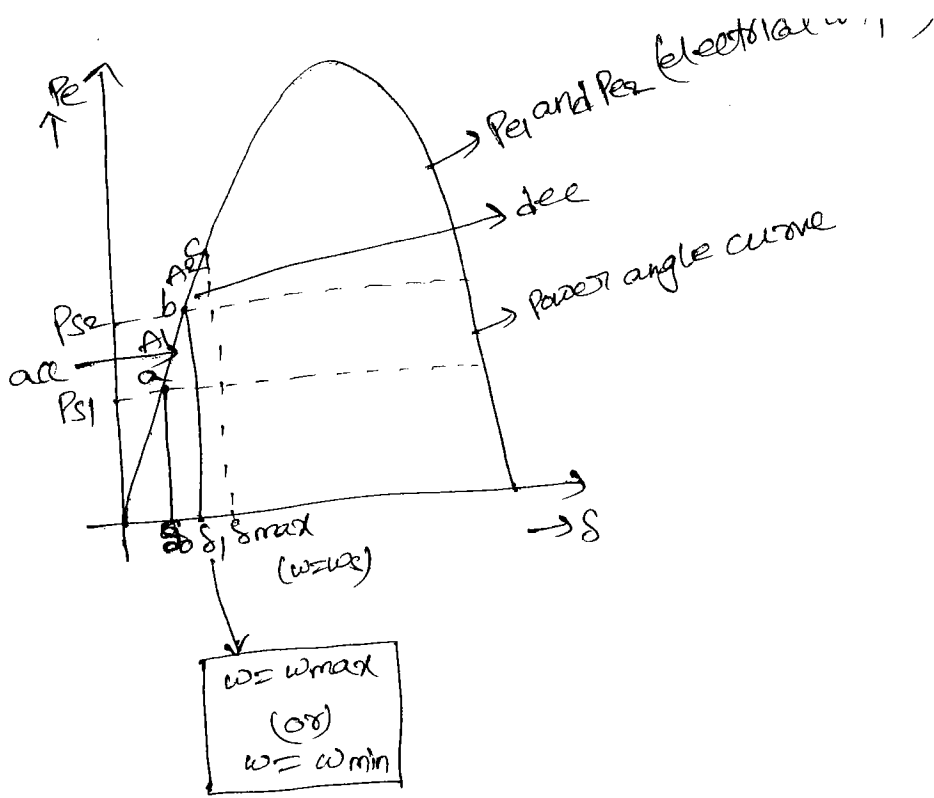 Pe
Pe1 and Pe2 (electrical
dec
Power angle curve
C
A2
b
Ps2
A1
acc
a
Ps1
δ0 δ1 δmax
(ω=ωs)
→ δ
ω = ωmax
(or)
ω = ωmin